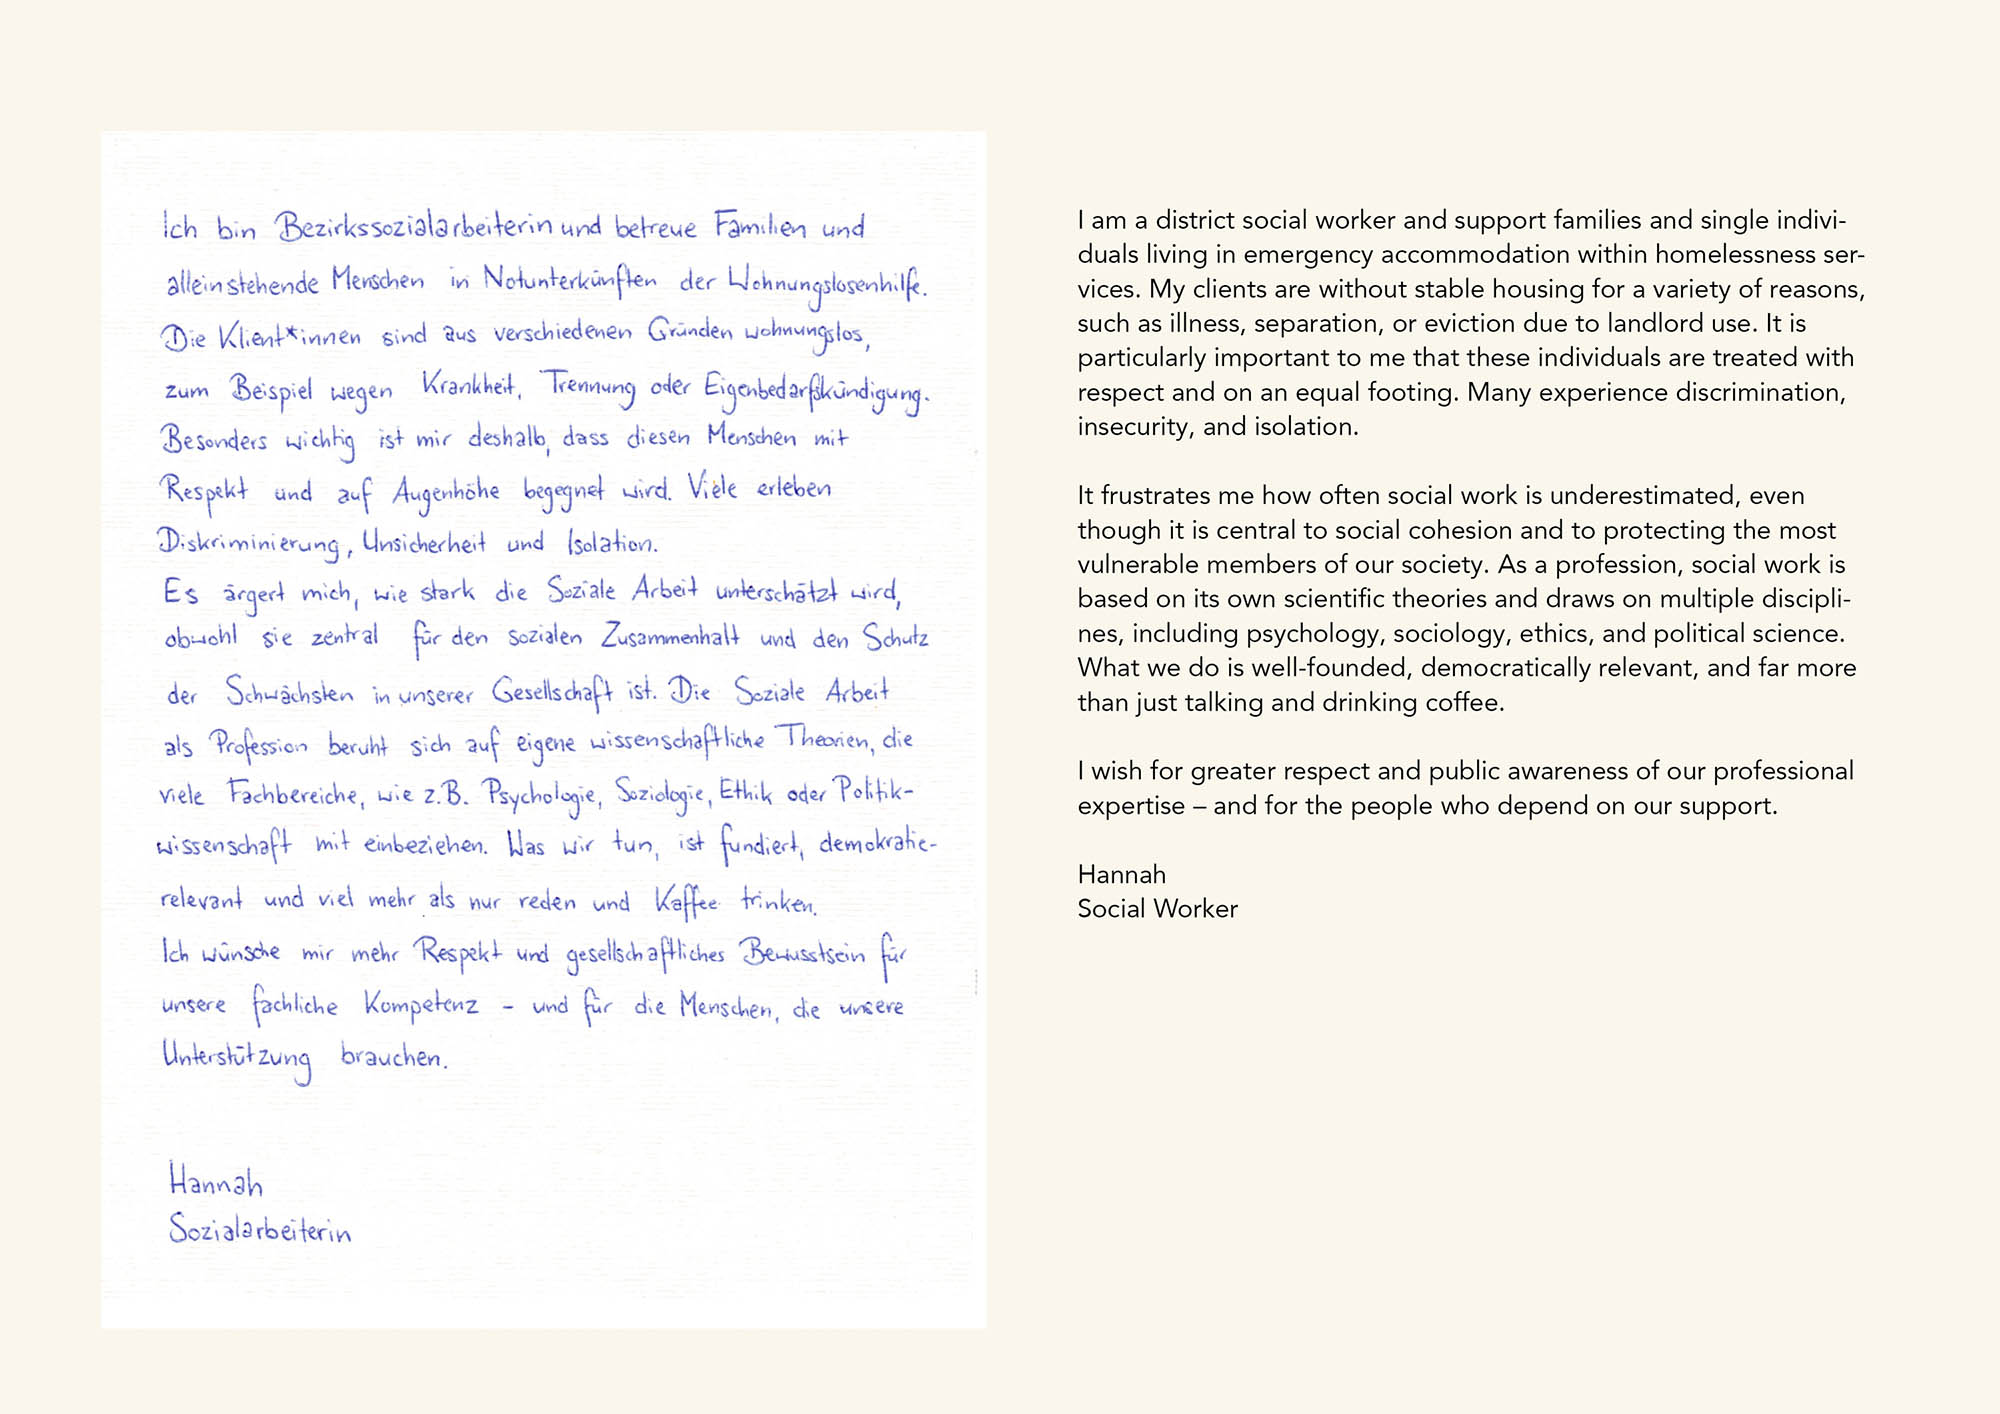 Ich bin Bezirkssozialarbeiterin und betreue Familien und
alleinstehende Menschen in Notunterkünften der Wohnungslosenhilfe.
Die Klient*innen sind aus verschiedenen Gründen wohnungslos,
zum Beispiel wegen Krankheit, Trennung oder Eigenbedarfskündigung.
Besonders wichtig ist mir deshalb, dass diesen Menschen mit
Respekt und auf Augenhöhe begegnet wird. Viele erleben
Diskriminierung, Unsicherheit und Isolation.
Es ärgert mich, wie stark die Soziale Arbeit unterschätzt wird,
obwohl sie zentral für den sozialen Zusammenhalt und den Schutz
der Schwächsten in unserer Gesellschaft ist. Die Soziale Arbeit
als Profession beruht sich auf eigene wissenschaftliche Theorien, die
viele Fachbereiche, wie z.B. Psychologie, Soziologie, Ethik oder Politik-
wissenschaft mit einbeziehen. Was wir tun, ist fundiert, demokratie-
relevant und viel mehr als nur reden und Kaffee trinken.
Ich wünsche mir mehr Respekt und gesellschaftliches Bewusstsein für
unsere fachliche Kompetenz – und für die Menschen, die unsere
Unterstützung brauchen.
Hannah
Sozialarbeiterin
I am a district social worker and support families and single indivi-
duals living in emergency accommodation within homelessness ser-
vices. My clients are without stable housing for a variety of reasons,
such as illness, separation, or eviction due to landlord use. It is
particularly important to me that these individuals are treated with
respect and on an equal footing. Many experience discrimination,
insecurity, and isolation.
It frustrates me how often social work is underestimated, even
though it is central to social cohesion and to protecting the most
vulnerable members of our society. As a profession, social work is
based on its own scientific theories and draws on multiple discipli-
nes, including psychology, sociology, ethics, and political science.
What we do is well-founded, democratically relevant, and far more
than just talking and drinking coffee.
I wish for greater respect and public awareness of our professional
expertise – and for the people who depend on our support.
Hannah
Social Worker